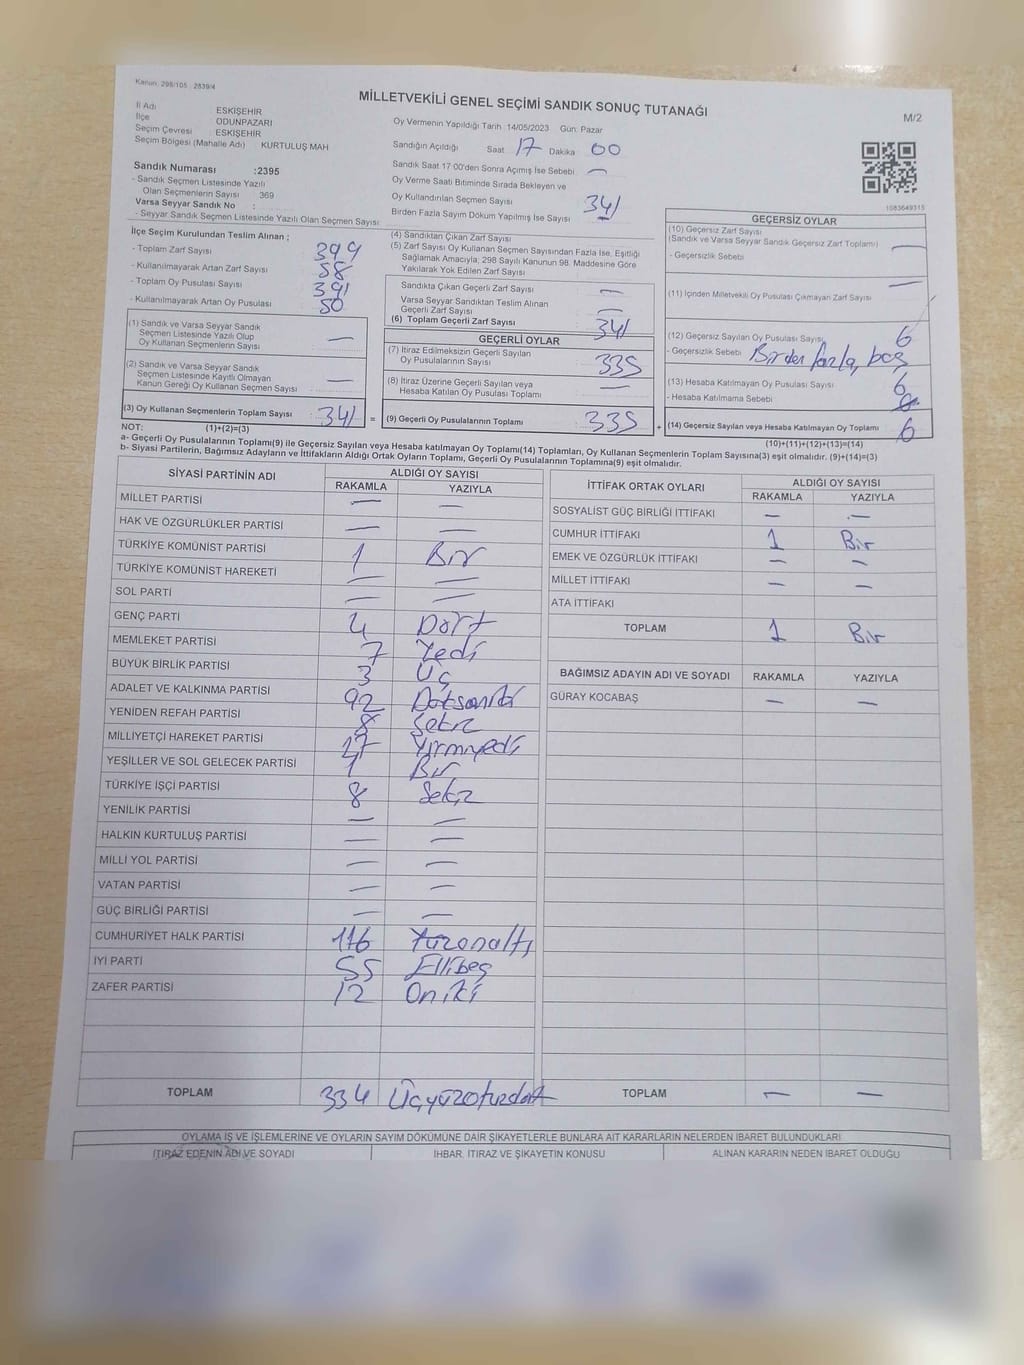 Kanun: 298/105 , 2839/4
MİLLETVEKİLİ GENEL SEÇİMİ SANDIK SONUÇ TUTANAĞI
M/2
İl Adı ESKİŞEHİR
İlçe ODUNPAZARI
Seçim Çevresi : ESKİŞEHİR
Seçim Bölgesi (Mahalle Adı) KURTULUŞ MAH
Sandık Numarası :2395
- Sandık Seçmen Listesinde Yazılı
Olan Seçmenlerin Sayısı : 369
Varsa Seyyar Sandık No :
- Seyyar Sandık Seçmen Listesinde Yazılı Olan Seçmen Sayısı:
Oy Vermenin Yapıldığı Tarih :14/05/2023 Gün: Pazar
Sandığın Açıldığı Saat 17 Dakika 00
Sandık Saat 17:00'den Sonra Açımış İse Sebebi —
Oy Verme Saati Bitiminde Sırada Bekleyen ve
Oy Kullandırılan Seçmen Sayısı 341
Birden Fazla Sayım Döküm Yapılmış İse Sayısı —
1083649315
İlçe Seçim Kurulundan Teslim Alınan ;
- Toplam Zarf Sayısı 399
- Kullanılmayarak Artan Zarf Sayısı 58
- Toplam Oy Pusulası Sayısı 391
- Kullanılmayarak Artan Oy Pusulası 50
(1) Sandık ve Varsa Seyyar Sandık
Seçmen Listesinde Yazılı Olup
Oy Kullanan Seçmenlerin Sayısı —
(2) Sandık ve Varsa Seyyar Sandık
Seçmen Listesinde Kayıtlı Olmayan
Kanun Gereği Oy Kullanan Seçmen Sayısı —
(3) Oy Kullanan Seçmenlerin Toplam Sayısı 341 =
(1)+(2)=(3)
(4) Sandıktan Çıkan Zarf Sayısı
(5) Zarf Sayısı Oy Kullanan Seçmen Sayısından Fazla İse, Eşitliği
Sağlamak Amacıyla, 298 Sayılı Kanunun 98. Maddesine Göre
Yakılarak Yok Edilen Zarf Sayısı
Sandıkta Çıkan Geçerli Zarf Sayısı —
Varsa Seyyar Sandıktan Teslim Alınan
Geçerli Zarf Sayısı —
(6) Toplam Geçerli Zarf Sayısı 341
GEÇERLİ OYLAR
(7) İtiraz Edilmeksizin Geçerli Sayılan
Oy Pusulalarının Sayısı 335
(8) İtiraz Üzerine Geçerli Sayılan veya
Hesaba Katılan Oy Pusulası Toplamı —
(9) Geçerli Oy Pusulalarının Toplamı 335 +
GEÇERSİZ OYLAR
(10) Geçersiz Zarf Sayısı
(Sandık ve Varsa Seyyar Sandık Geçersiz Zarf Toplamı) —
- Geçersizlik Sebebi
(11) İçinden Milletvekili Oy Pusulası Çıkmayan Zarf Sayısı —
(12) Geçersiz Sayılan Oy Pusulası Sayısı 6
- Geçersizlik Sebebi Birden fazla, boş
(13) Hesaba Katılmayan Oy Pusulası Sayısı 6
- Hesaba Katılmama Sebebi
(14) Geçersiz Sayılan veya Hesaba Katılmayan Oy Toplamı 6
(10)+(11)+(12)+(13)=(14)
NOT:
a- Geçerli Oy Pusulalarının Toplamı(9) ile Geçersiz Sayılan veya Hesaba katılmayan Oy Toplamı(14) Toplamları, Oy Kullanan Seçmenlerin Toplam Sayısına(3) eşit olmalıdır. (9)+(14)=(3)
b- Siyasi Partilerin, Bağımsız Adayların ve İttifakların Aldığı Ortak Oyların Toplamı, Geçerli Oy Pusulalarının Toplamına(9) eşit olmalıdır.
SİYASİ PARTİNİN ADI ALDIĞI OY SAYISI
RAKAMLA YAZIYLA
MİLLET PARTİSİ — —
HAK VE ÖZGÜRLÜKLER PARTİSİ — —
TÜRKİYE KOMÜNİST PARTİSİ 1 Bir
TÜRKİYE KOMÜNİST HAREKETİ — —
SOL PARTİ — —
GENÇ PARTİ 4 Dört
MEMLEKET PARTİSİ 7 Yedi
BÜYÜK BİRLİK PARTİSİ 3 Üç
ADALET VE KALKINMA PARTİSİ 92
YENİDEN REFAH PARTİSİ 8 Sekiz
MİLLİYETÇİ HAREKET PARTİSİ 27 Yirmiyedi
YEŞİLLER VE SOL GELECEK PARTİSİ 1 Bir
TÜRKİYE İŞÇİ PARTİSİ 8 Sekiz
YENİLİK PARTİSİ — —
HALKIN KURTULUŞ PARTİSİ — —
MİLLİ YOL PARTİSİ — —
VATAN PARTİSİ — —
GÜÇ BİRLİĞİ PARTİSİ — —
CUMHURİYET HALK PARTİSİ 116 Yüzonaltı
İYİ PARTİ 55 Ellibeş
ZAFER PARTİSİ 12 Oniki
TOPLAM 334 Üçyüzotuzdört
İTTİFAK ORTAK OYLARI ALDIĞI OY SAYISI
RAKAMLA YAZIYLA
SOSYALİST GÜÇ BİRLİĞİ İTTİFAKI — —
CUMHUR İTTİFAKI 1 Bir
EMEK VE ÖZGÜRLÜK İTTİFAKI — —
MİLLET İTTİFAKI — —
ATA İTTİFAKI
TOPLAM 1 Bir
BAĞIMSIZ ADAYIN ADI VE SOYADI RAKAMLA YAZIYLA
GÜRAY KOCABAŞ — —
TOPLAM — —
OYLAMA İŞ VE İŞLEMLERİNE VE OYLARIN SAYIM DÖKÜMÜNE DAİR ŞİKAYETLERLE BUNLARA AİT KARARLARIN NELERDEN İBARET BULUNDUKLARI
İTİRAZ EDENİN ADI VE SOYADI İHBAR, İTİRAZ VE ŞİKAYETİN KONUSU ALINAN KARARIN NEDEN İBARET OLDUĞU